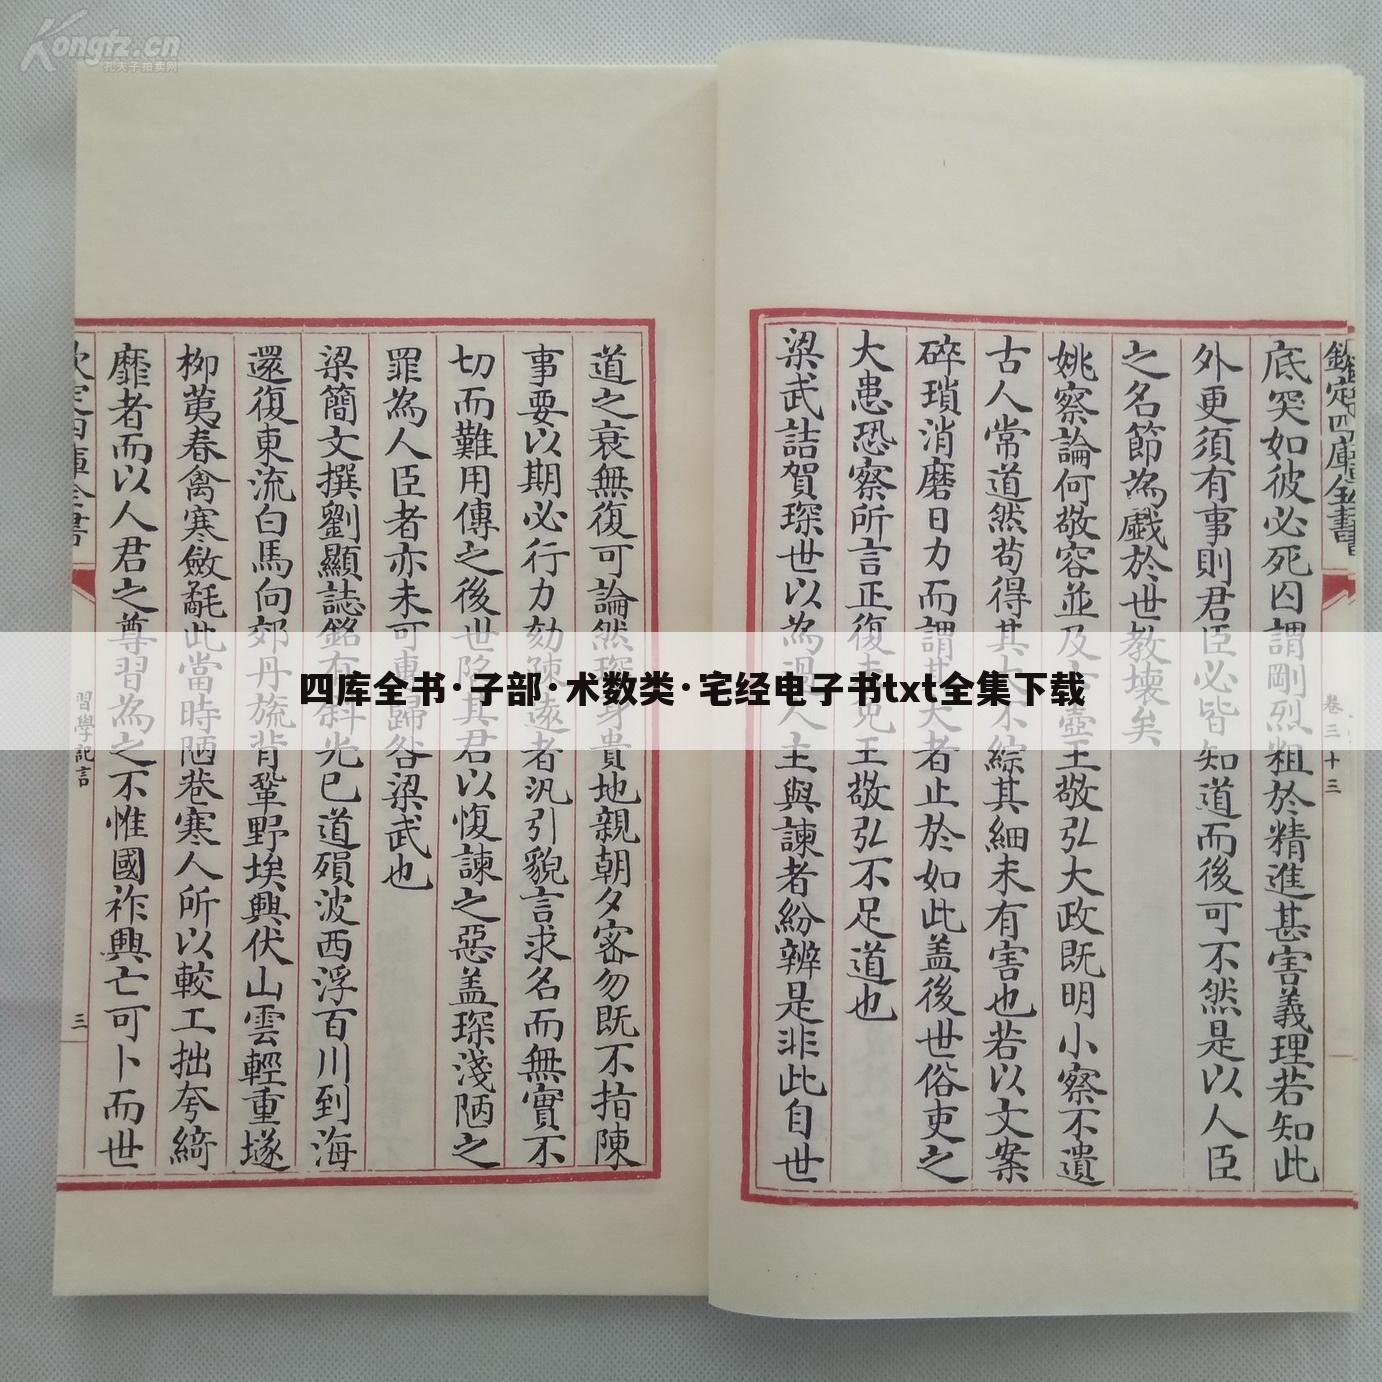 Kongfz.cn
孔夫子拍卖网
四库全书·子部·术数类·宅经电子书txt全集下载
欽定四庫全書
卷三十三
底突如彼必死囚謂剛烈粗於精進甚害義理若知此
外更須有事則君臣必皆知道而後可不然是以人臣
之名節為戲於世教壞矣
姚察論何敬容並及卞壼王敬弘大政既明小察不遺
古人常道然苟得其大不綜其細未有害也若以文案
碎瑣消磨日力而謂其大者止於如此盖後世俗吏之
大患恐察所言正復未免王敬弘不足道也
梁武詰賀琛世以為過人主與諫者紛辨是非此自世
道之衰無復可論然琛身貴地親朝夕密勿既不指陳
事要以期必行力劾陳遠者汎引貌言求名而無實不
切而難用傳之後世陷其君以愎諫之惡盖琛淺陋之
罪為人臣者亦未可專歸咎梁武也
梁簡文撰劉顯誌銘有斜光已道殞波西浮百川到海
還復東流白馬向郊丹旐背鞏野埃興伏山雲輕重墜
柳荑春禽寒斂氄此當時陋巷寒人所以較工拙夸綺
靡者而以人君之尊習為之不惟國祚興亡可卜而世
欽定四庫全書
習學記言
三